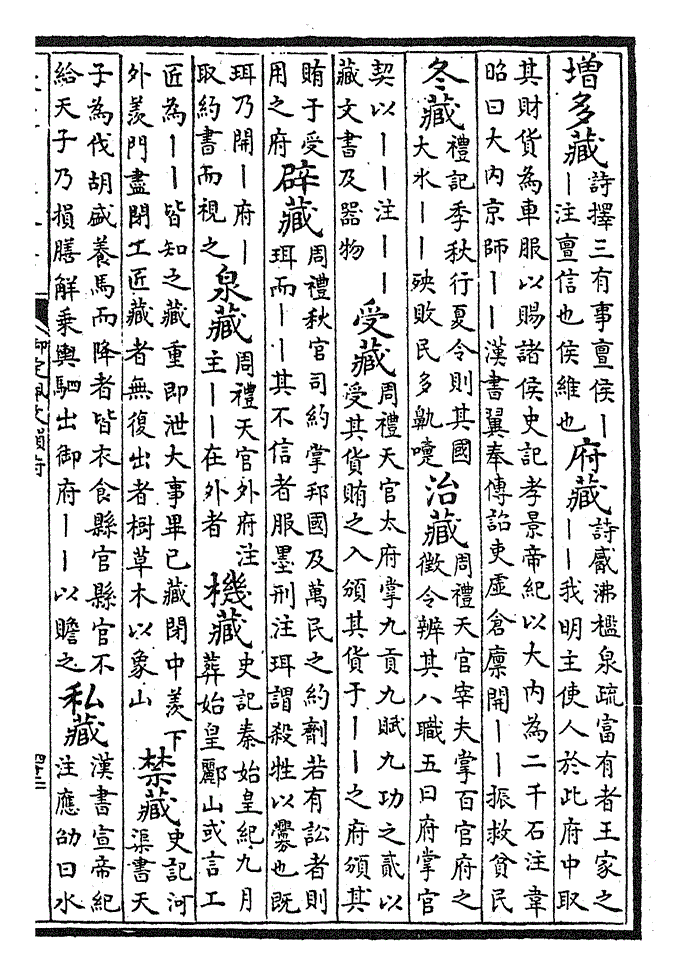 增多藏
詩擇三有事亶侯丨
丨注亶信也侯維也
府藏
詩觱沸檻泉疏富有者王家之
丨丨我明主使人於此府中取
其財貨為車服以賜諸侯史記孝景帝紀以大內為二千石注韋
昭曰大內京師丨丨漢書翼奉傳詔吏虛倉廩開丨丨振救貧民
冬藏
禮記季秋行夏令則其國
大水丨丨殃敗民多鼽嚏
治藏
周禮天官宰夫掌百官府之
徵令辨其八職五曰府掌官
契以丨丨注丨丨
藏文書及器物
受藏
周禮天官太府掌九貢九賦九功之貳以
受其貨賄之入頒其貨于丨丨之府頒其
賄于受
用之府
辟藏
周禮秋官司約掌邦國及萬民之約劑若有訟者則
珥而丨丨其不信者服墨刑注珥謂殺牲以釁也既
珥乃開丨府丨
取約書而視之
泉藏
周禮天官外府注
主丨丨在外者
機藏
史記秦始皇紀九月
葬始皇酈山或言工
匠為丨丨皆知之藏重即泄大事畢已藏閉中羨下
外羨門盡閉工匠藏者無復出者樹草木以象山
禁藏
史記河
渠書天
子為伐胡盛養馬而降者皆衣食縣官縣官不
給天子乃損膳解乘輿駟出御府丨丨以贍之
私藏
漢書宣帝紀
注應劭曰水
御定佩文韻府